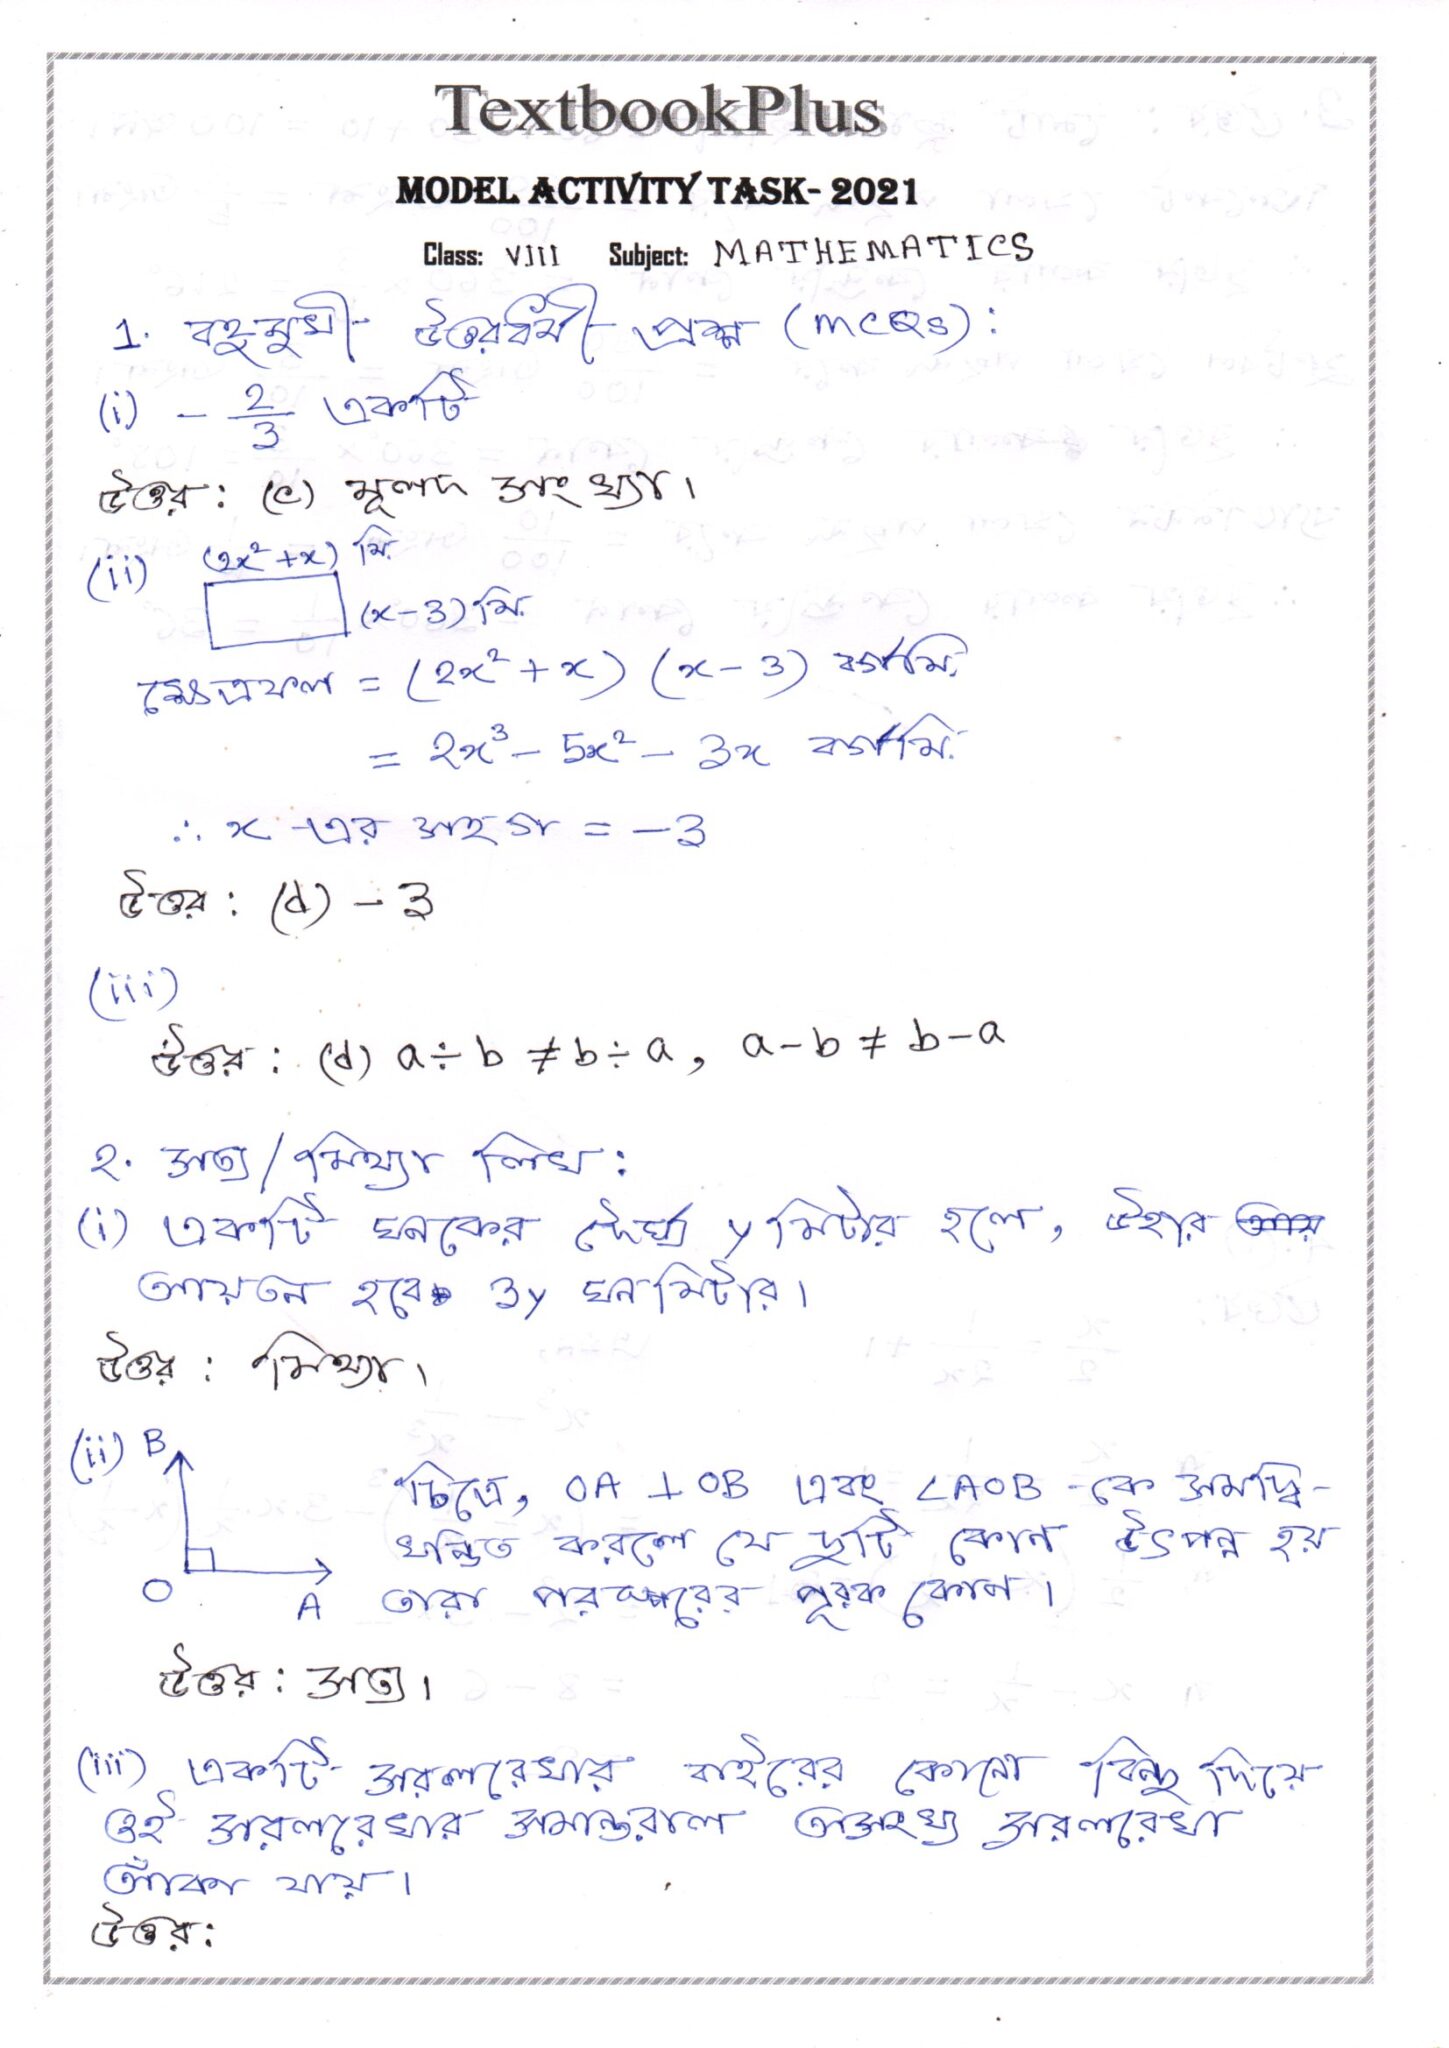 TextbookPlus
MODEL ACTIVITY TASK- 2021
Class: VIII Subject: MATHEMATICS
1. বহুমুখী উত্তরধর্মী প্রশ্ন (MCQs):
(i) - 2/3 একটি
উত্তর: (c) মূলদ সংখ্যা।
(ii) (2x² + x) মি.
(x-3) মি.
ক্ষেত্রফল = (2x² + x) (x - 3) বর্গমি.
= 2x³ - 5x² - 3x বর্গমি.
∴ x -এর সহগ = -3
উত্তর: (d) - 3
(iii)
উত্তর: (d) a ÷ b ≠ b ÷ a, a-b ≠ b-a
২. সত্য/মিথ্যা লিখ:
(i) একটি ঘনকের দৈর্ঘ্য y মিটার হলে, উহার
আয়তন হবে 3y ঘনমিটার।
উত্তর: মিথ্যা।
(ii) B
O
A
চিত্রে, OA ⊥ OB এবং ∠AOB -কে সমদ্বি-
খন্ডিত করলে যে দুটি কোণ উৎপন্ন হয়
তারা পরস্পরের পূরক কোণ।
উত্তর: সত্য।
(iii) একটি সরলরেখার বাইরের কোনো বিন্দু দিয়ে
ওই সরলরেখার সমান্তরাল অসংখ্য সরলরেখা
আঁকা যায়।
উত্তর: